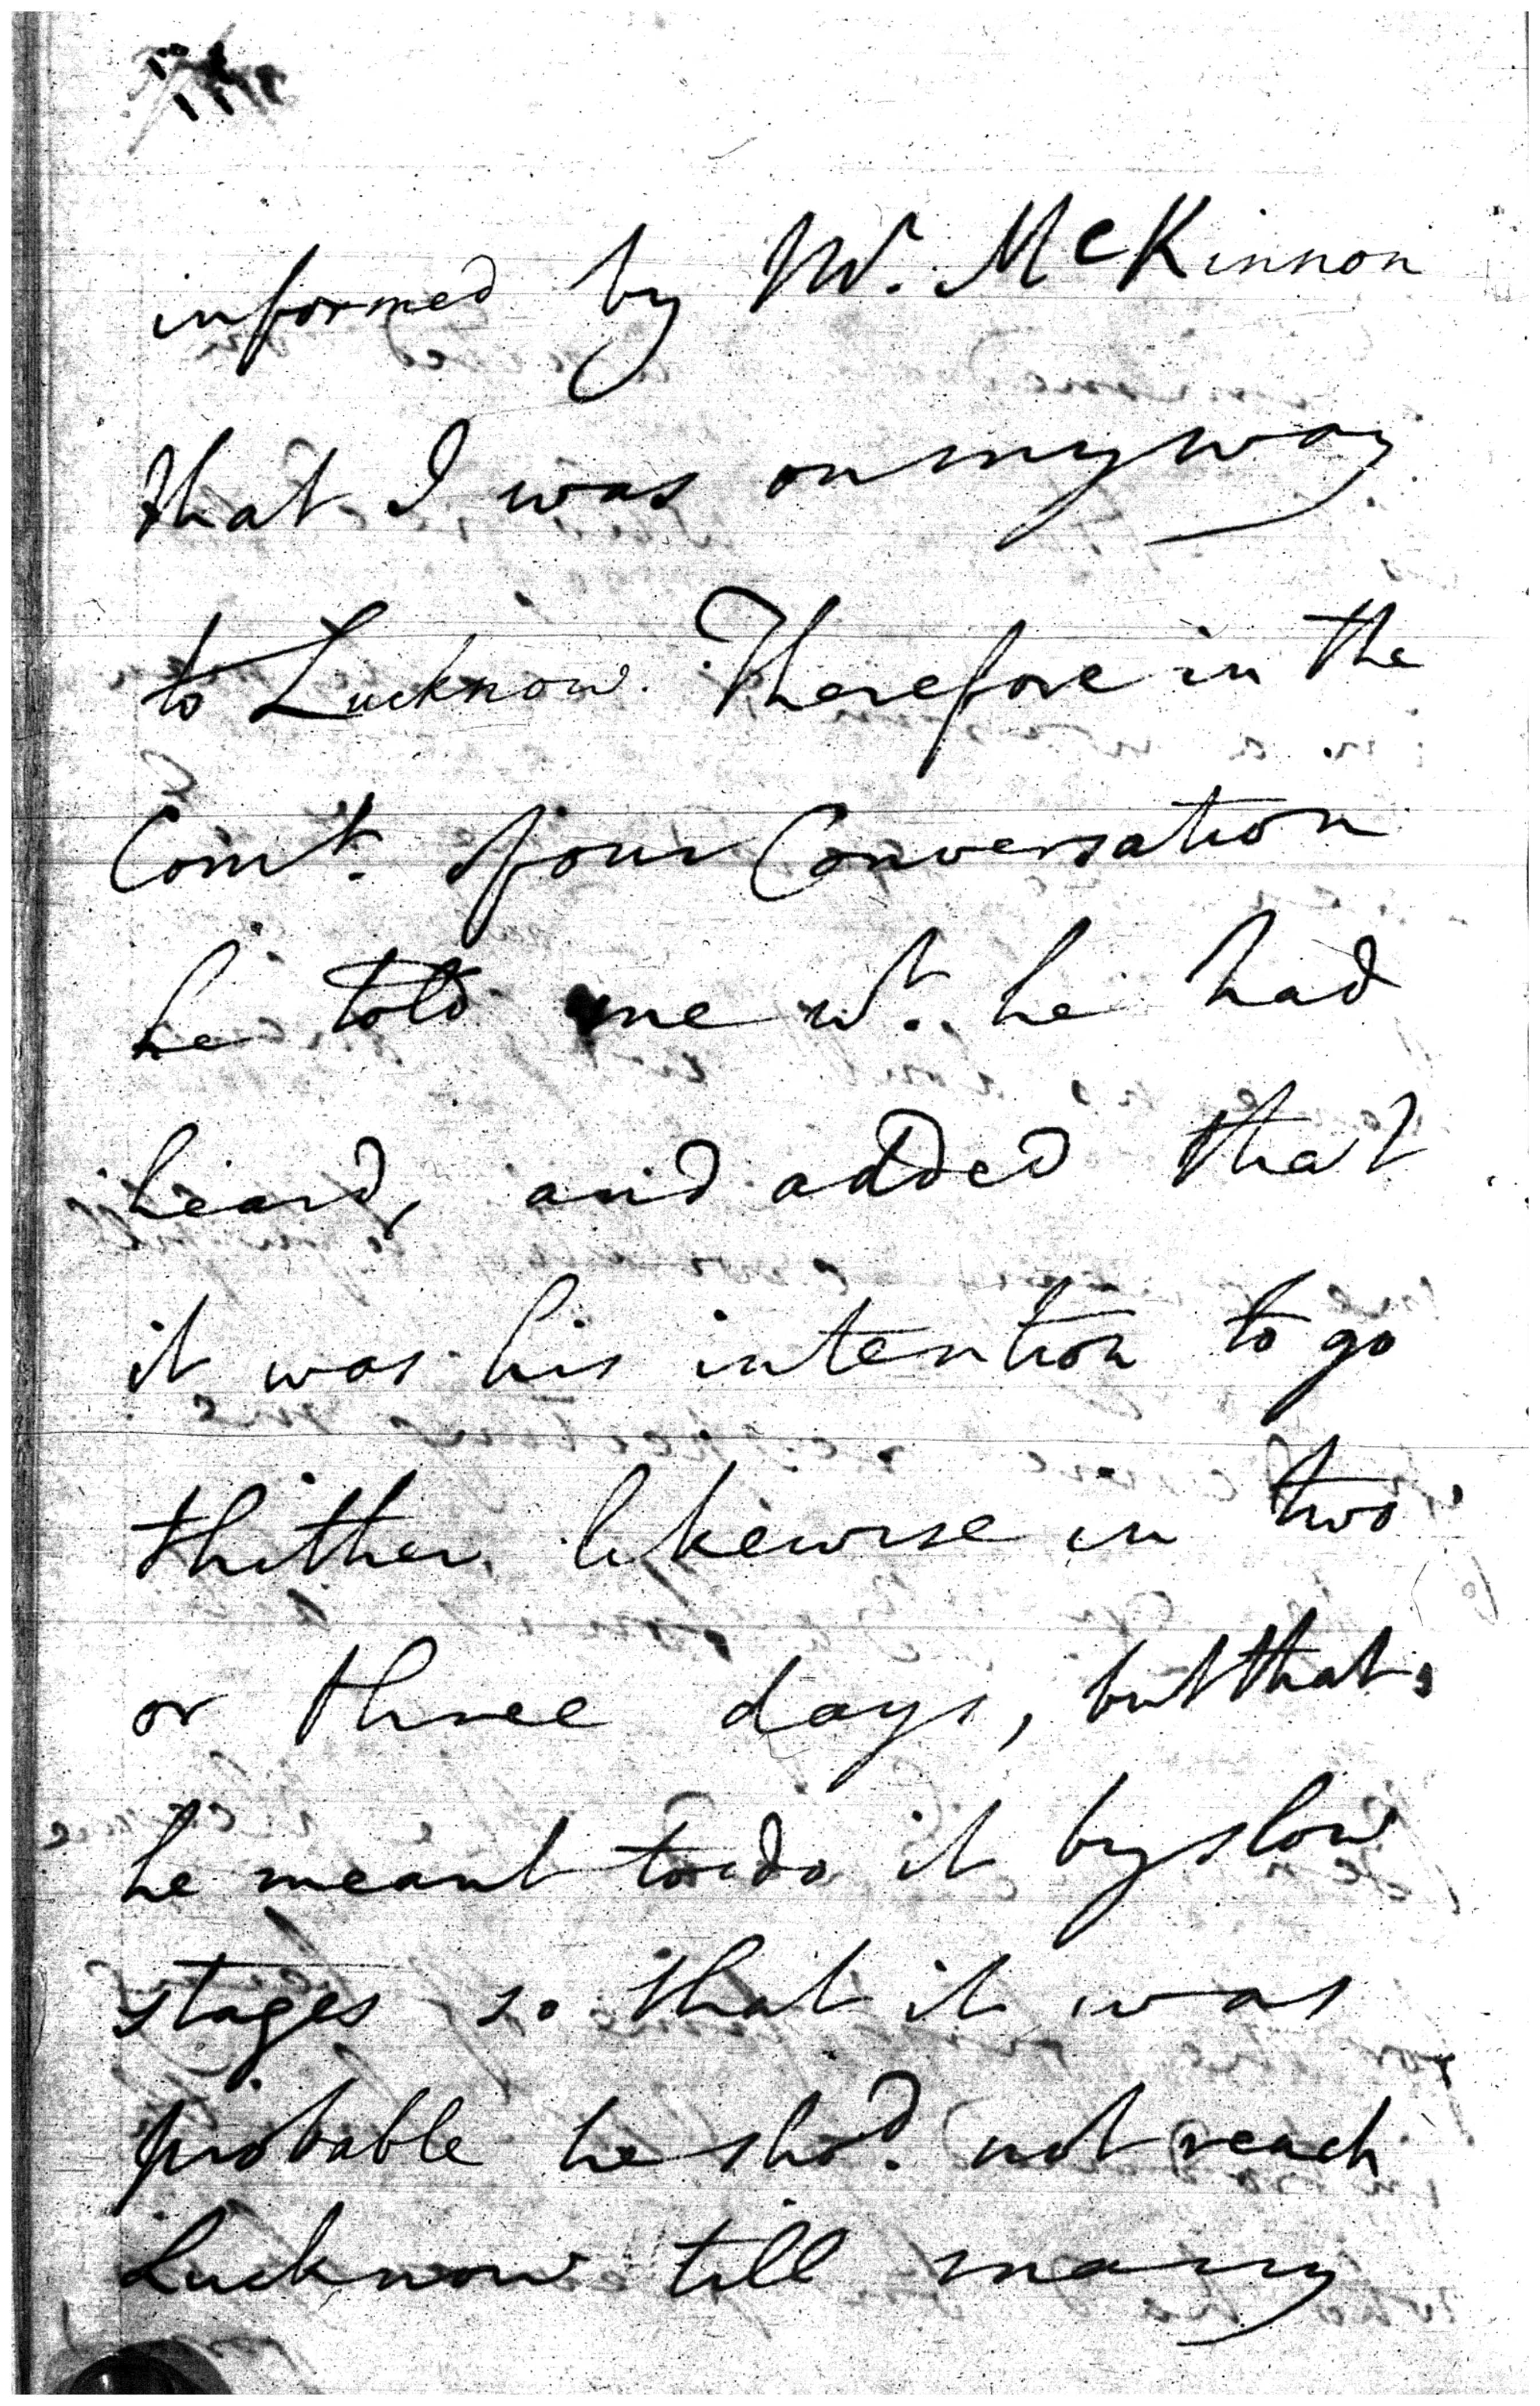 informed by Mr. McKinnon
that I was on my way
to Lucknow. Therefore in the
of our Conversation
he told me wt. he had
heard, and added that
it was his intention to go
thither likewise in two
or three days, but that
he meant to do it by slow
stages so that it was
probable he shod. not reach
Lucknow till many